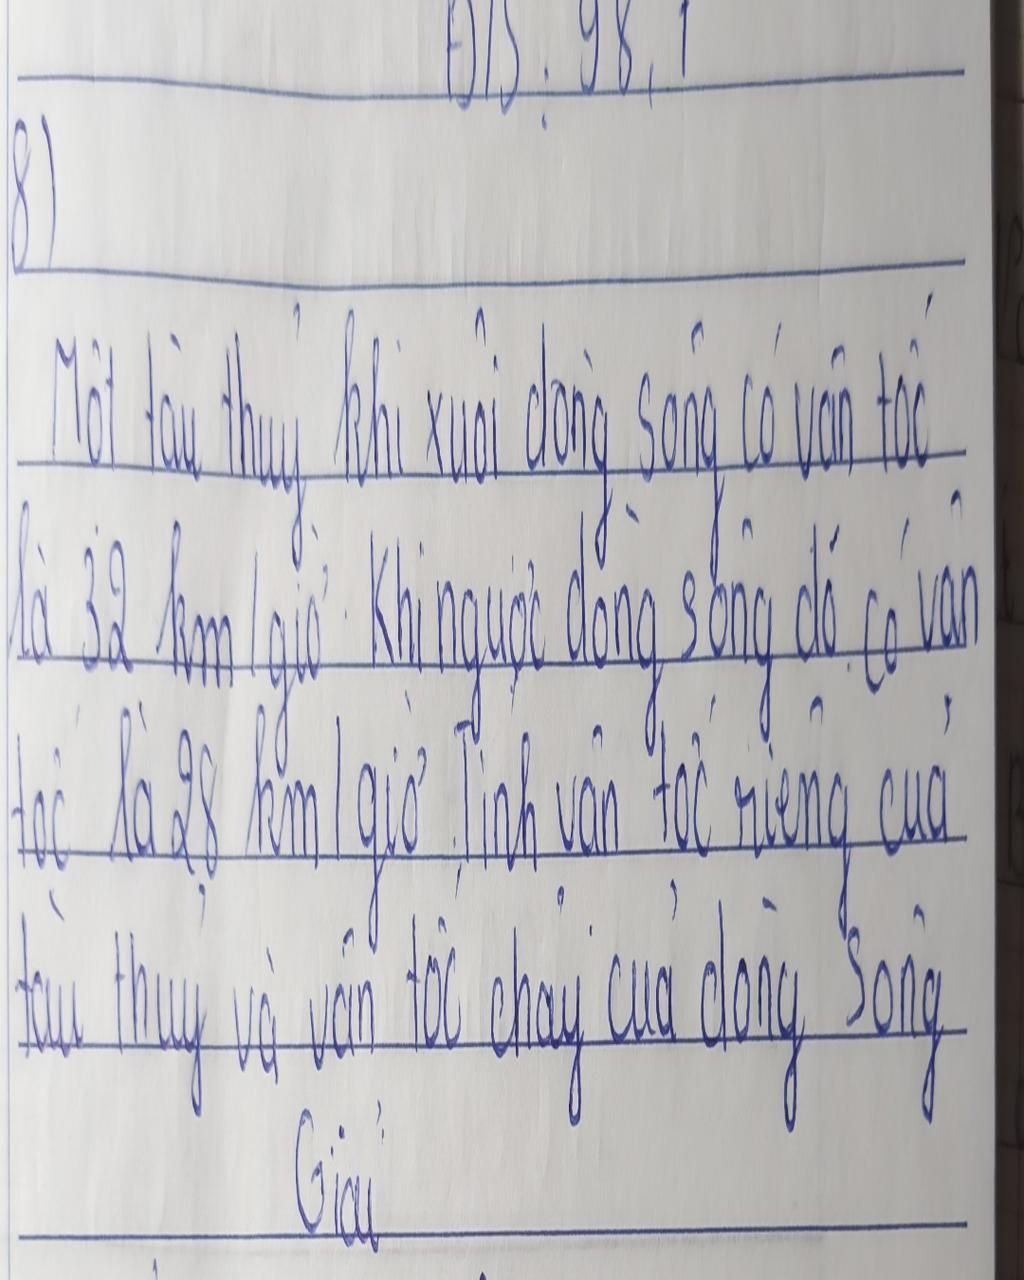 Đ/S : 98,1
8)
Một tàu thuỷ khi xuôi dòng sông có vận tốc
là 32 km/giờ. Khi ngược dòng sông đó có vận
tốc là 28 km/giờ. Tính vận tốc riêng của
tàu thuỷ và vận tốc chảy của dòng sông
Giải